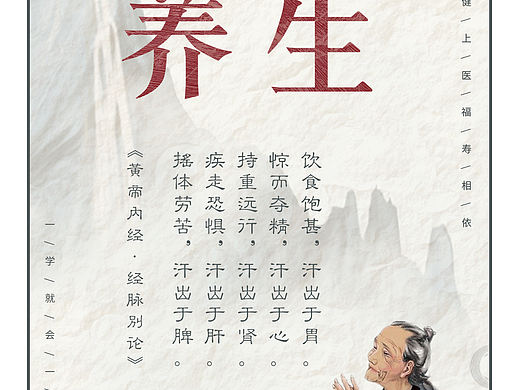 养生
健上医福寿相依
饮食饱甚，汗出于胃。
惊而夺精，汗出于心。
持重远行，汗出于肾。
疾走恐惧，汗出于肝。
摇体劳苦，汗出于脾。
《黄帝内经·经脉别论》
一学就会一